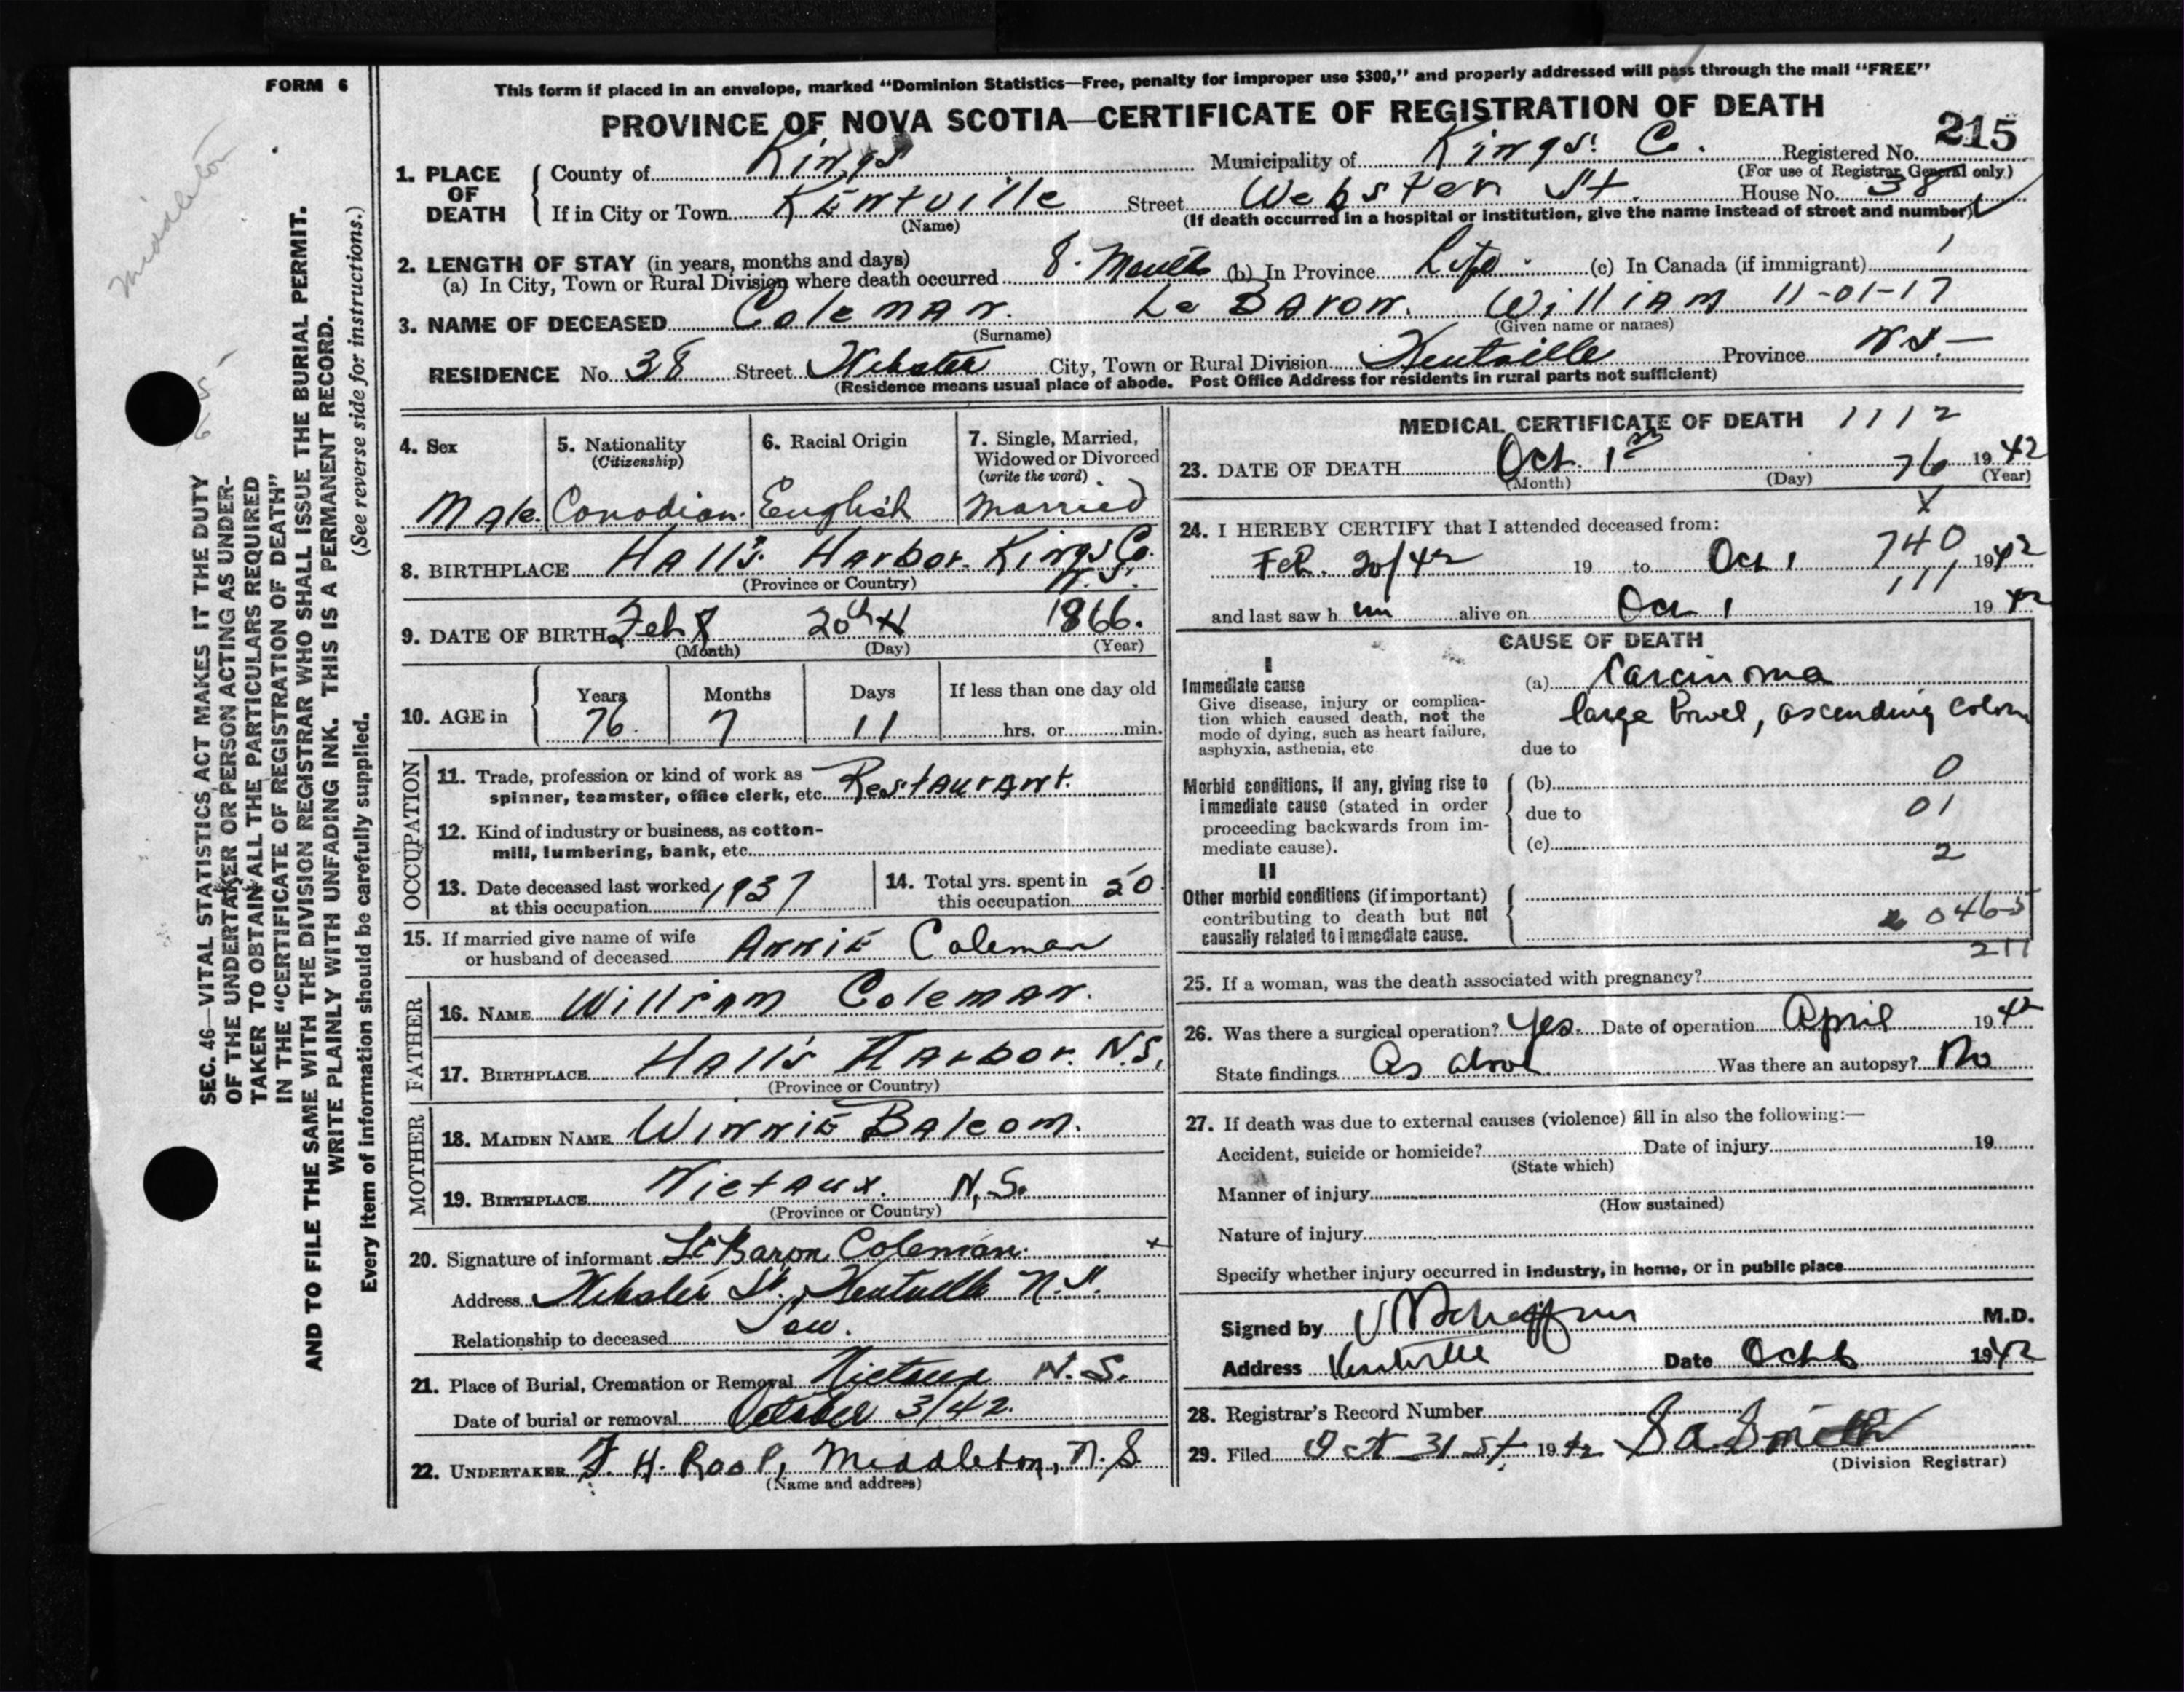 FORM 6
This form if placed in an envelope, marked "Dominion Statistics—Free, penalty for improper use $300," and properly addressed will pass through the mail "FREE"
PROVINCE OF NOVA SCOTIA—CERTIFICATE OF REGISTRATION OF DEATH
215
Middleton
SEC. 46—VITAL STATISTICS ACT MAKES IT THE DUTY
OF THE UNDERTAKER OR PERSON ACTING AS UNDER-
TAKER TO OBTAIN ALL THE PARTICULARS REQUIRED
IN THE "CERTIFICATE OF REGISTRATION OF DEATH"
AND TO FILE THE SAME WITH THE DIVISION REGISTRAR WHO SHALL ISSUE THE BURIAL PERMIT.
WRITE PLAINLY WITH UNFADING INK. THIS IS A PERMANENT RECORD.
(See reverse side for instructions.)
Every item of information should be carefully supplied.
1. PLACE OF DEATH
County of Kings Municipality of Kings Co. Registered No.
(For use of Registrar General only)
If in City or Town Kentville Street Webster St. House No. 38
(Name) (If death occurred in a hospital or institution, give the name instead of street and number)
2. LENGTH OF STAY (in years, months and days)
(a) In City, Town or Rural Division where death occurred 8 Months (b) In Province Life (c) In Canada (if immigrant)
3. NAME OF DECEASED Coleman. Le Baron. William 11-01-17
(Surname) (Given name or names)
RESIDENCE No. 38 Street Webster City, Town or Rural Division Kentville Province N.S.—
(Residence means usual place of abode. Post Office Address for residents in rural parts not sufficient)
4. Sex
Male.
5. Nationality
(Citizenship)
Canadian.
6. Racial Origin
English
7. Single, Married,
Widowed or Divorced
(write the word)
Married
8. BIRTHPLACE Hall's Harbor. Kings Co. N.S.
(Province or Country)
9. DATE OF BIRTH Feb 20th 1866.
(Month) (Day) (Year)
10. AGE in
Years Months Days If less than one day old
76. 7 11 hrs. or min.
OCCUPATION
11. Trade, profession or kind of work as
spinner, teamster, office clerk, etc. Restaurant.
12. Kind of industry or business, as cotton-
mill, lumbering, bank, etc.
13. Date deceased last worked
at this occupation 1937
14. Total yrs. spent in
this occupation 50
15. If married give name of wife
or husband of deceased Annie Coleman
FATHER
16. NAME William Coleman.
17. BIRTHPLACE Hall's Harbor. N.S.
(Province or Country)
MOTHER
18. MAIDEN NAME Winnie Balcom.
19. BIRTHPLACE Nictaux. N.S.
(Province or Country)
20. Signature of informant LeBaron Coleman. x
Address Webster St., Kentville N.S.
Relationship to deceased Son.
21. Place of Burial, Cremation or Removal Nictaux N.S.
Date of burial or removal October 3/42.
22. UNDERTAKER F. H. Roop, Middleton, N.S.
(Name and address)
MEDICAL CERTIFICATE OF DEATH 1112
23. DATE OF DEATH Oct. 1st 76 1942
(Month) (Day) (Year)
x
24. I HEREBY CERTIFY that I attended deceased from:
740
Feb. 20/42 19 to Oct 1 1942
111
and last saw h im alive on Oct 1 1942
CAUSE OF DEATH
I
Immediate cause
Give disease, injury or complica-
tion which caused death, not the
mode of dying, such as heart failure,
asphyxia, asthenia, etc
(a) Carcinoma
large bowel, ascending colon
due to
Morbid conditions, if any, giving rise to
immediate cause (stated in order
proceeding backwards from im-
mediate cause).
(b) 0
due to 01
(c) 2
II
Other morbid conditions (if important)
contributing to death but not
causally related to immediate cause.
2 0465
211
25. If a woman, was the death associated with pregnancy?
26. Was there a surgical operation? Yes. Date of operation April 1942
State findings As above Was there an autopsy? No
27. If death was due to external causes (violence) fill in also the following:—
Accident, suicide or homicide? Date of injury 19
(State which)
Manner of injury
(How sustained)
Nature of injury
Specify whether injury occurred in industry, in home, or in public place
Signed by M.D.
Address Kentville Date Oct 6 1942
28. Registrar's Record Number
29. Filed Oct 31st 1942 Smith
(Division Registrar)